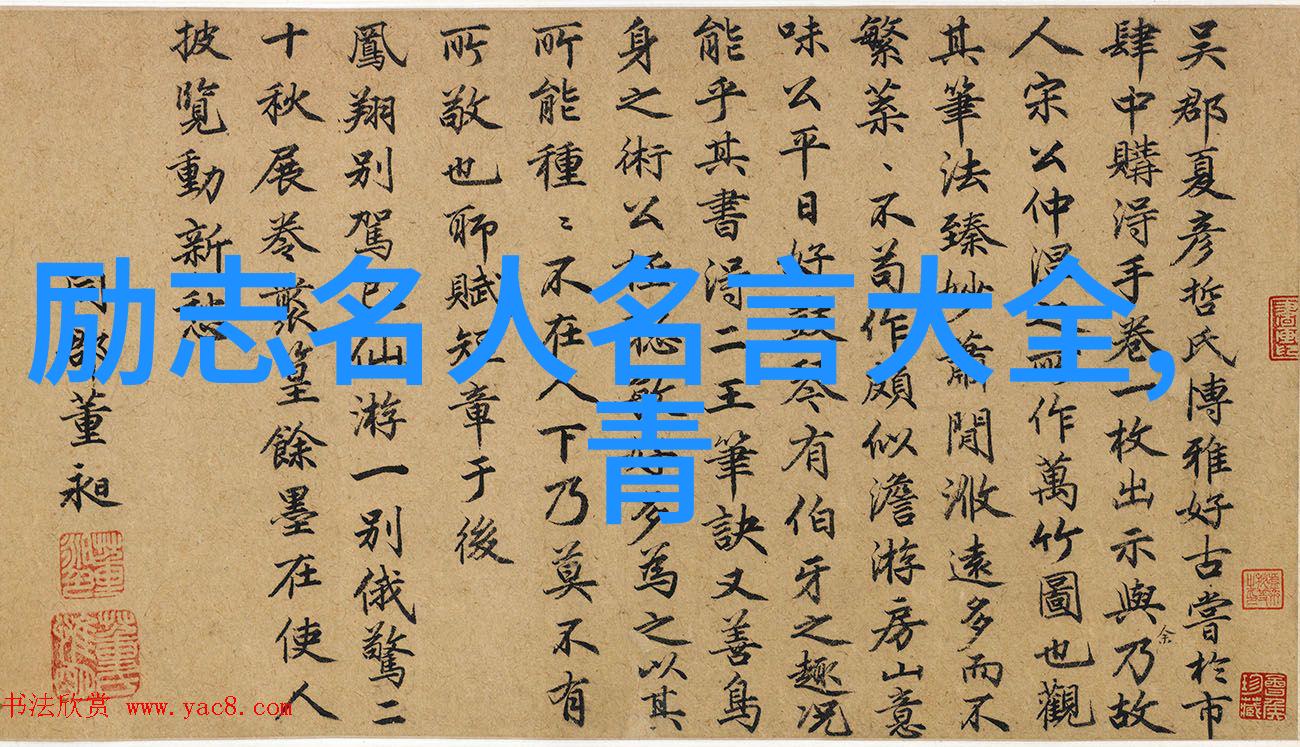 吴郡夏彦哲氏博雅好古嘗於市
肆中購得手卷一枚出示與乃故
余
人宋公仲温之所作萬竹圖也觀
其筆法臻妙蕭閒濰遠多而不
繁萦〻不苟作頗似澹游房山意
味公平日好鼓琴有伯牙之趣况
能乎其書得二王筆訣又善鳥
身之術公
多為之以其
所能種〻不在人下乃莫不有
所敬也聊賦短章于後
鳳翔别駕已仙游一别俄驚二
十秋展卷
篁餘墨在使人
披覽動新愁
同郡董昶
励志名人名言大全,
青
书法欣赏 www.yac8.com